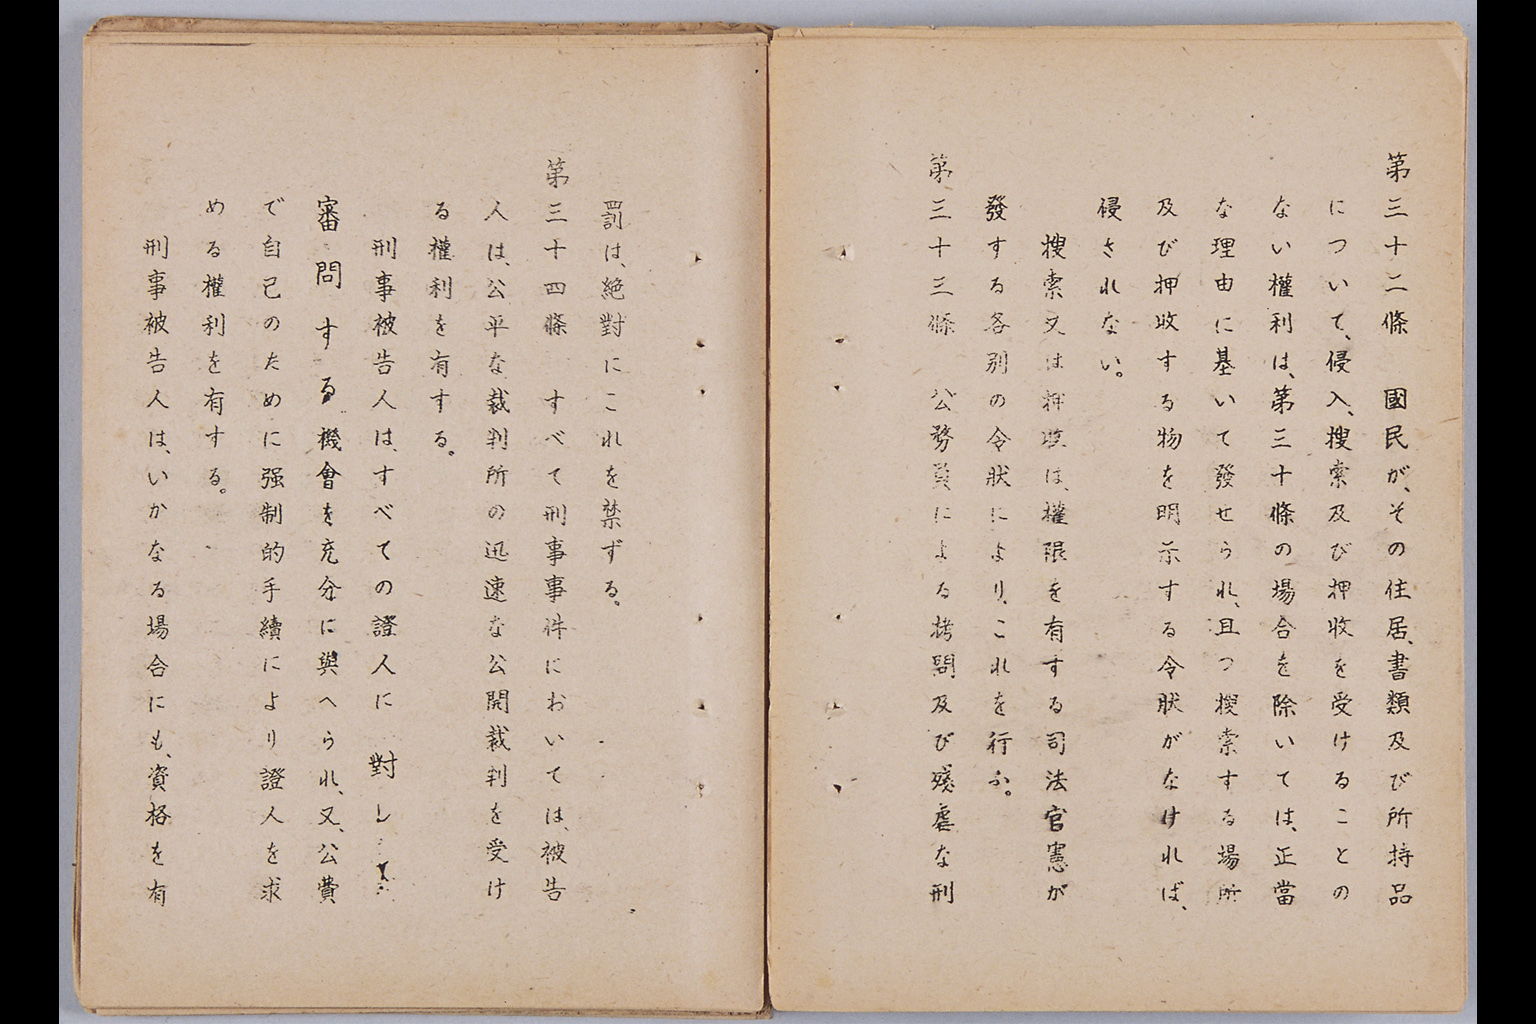 第三十二條　國民が、その住居、書類及び所持品
について、侵入、搜索及び押收を受けることの
ない權利は、第三十條の場合を除いては、正當
な理由に基いて發せられ、且つ搜索する場所
及び押收する物を明示する令狀がなければ、
侵されない。
搜索又は押收は、權限を有する司法官憲が
發する各別の令狀により、これを行ふ。
第三十三條　公務員による拷問及び殘虐な刑
罰は、絶對にこれを禁ずる。
第三十四條　すべて刑事事件においては、被告
人は、公平な裁判所の迅速な公開裁判を受け
る權利を有する。
刑事被告人は、すべての證人に對し
審問する機會を充分に與へられ、又、公費
で自己のために强制的手續により證人を求
める權利を有する。
刑事被告人は、いかなる場合にも、資格を有